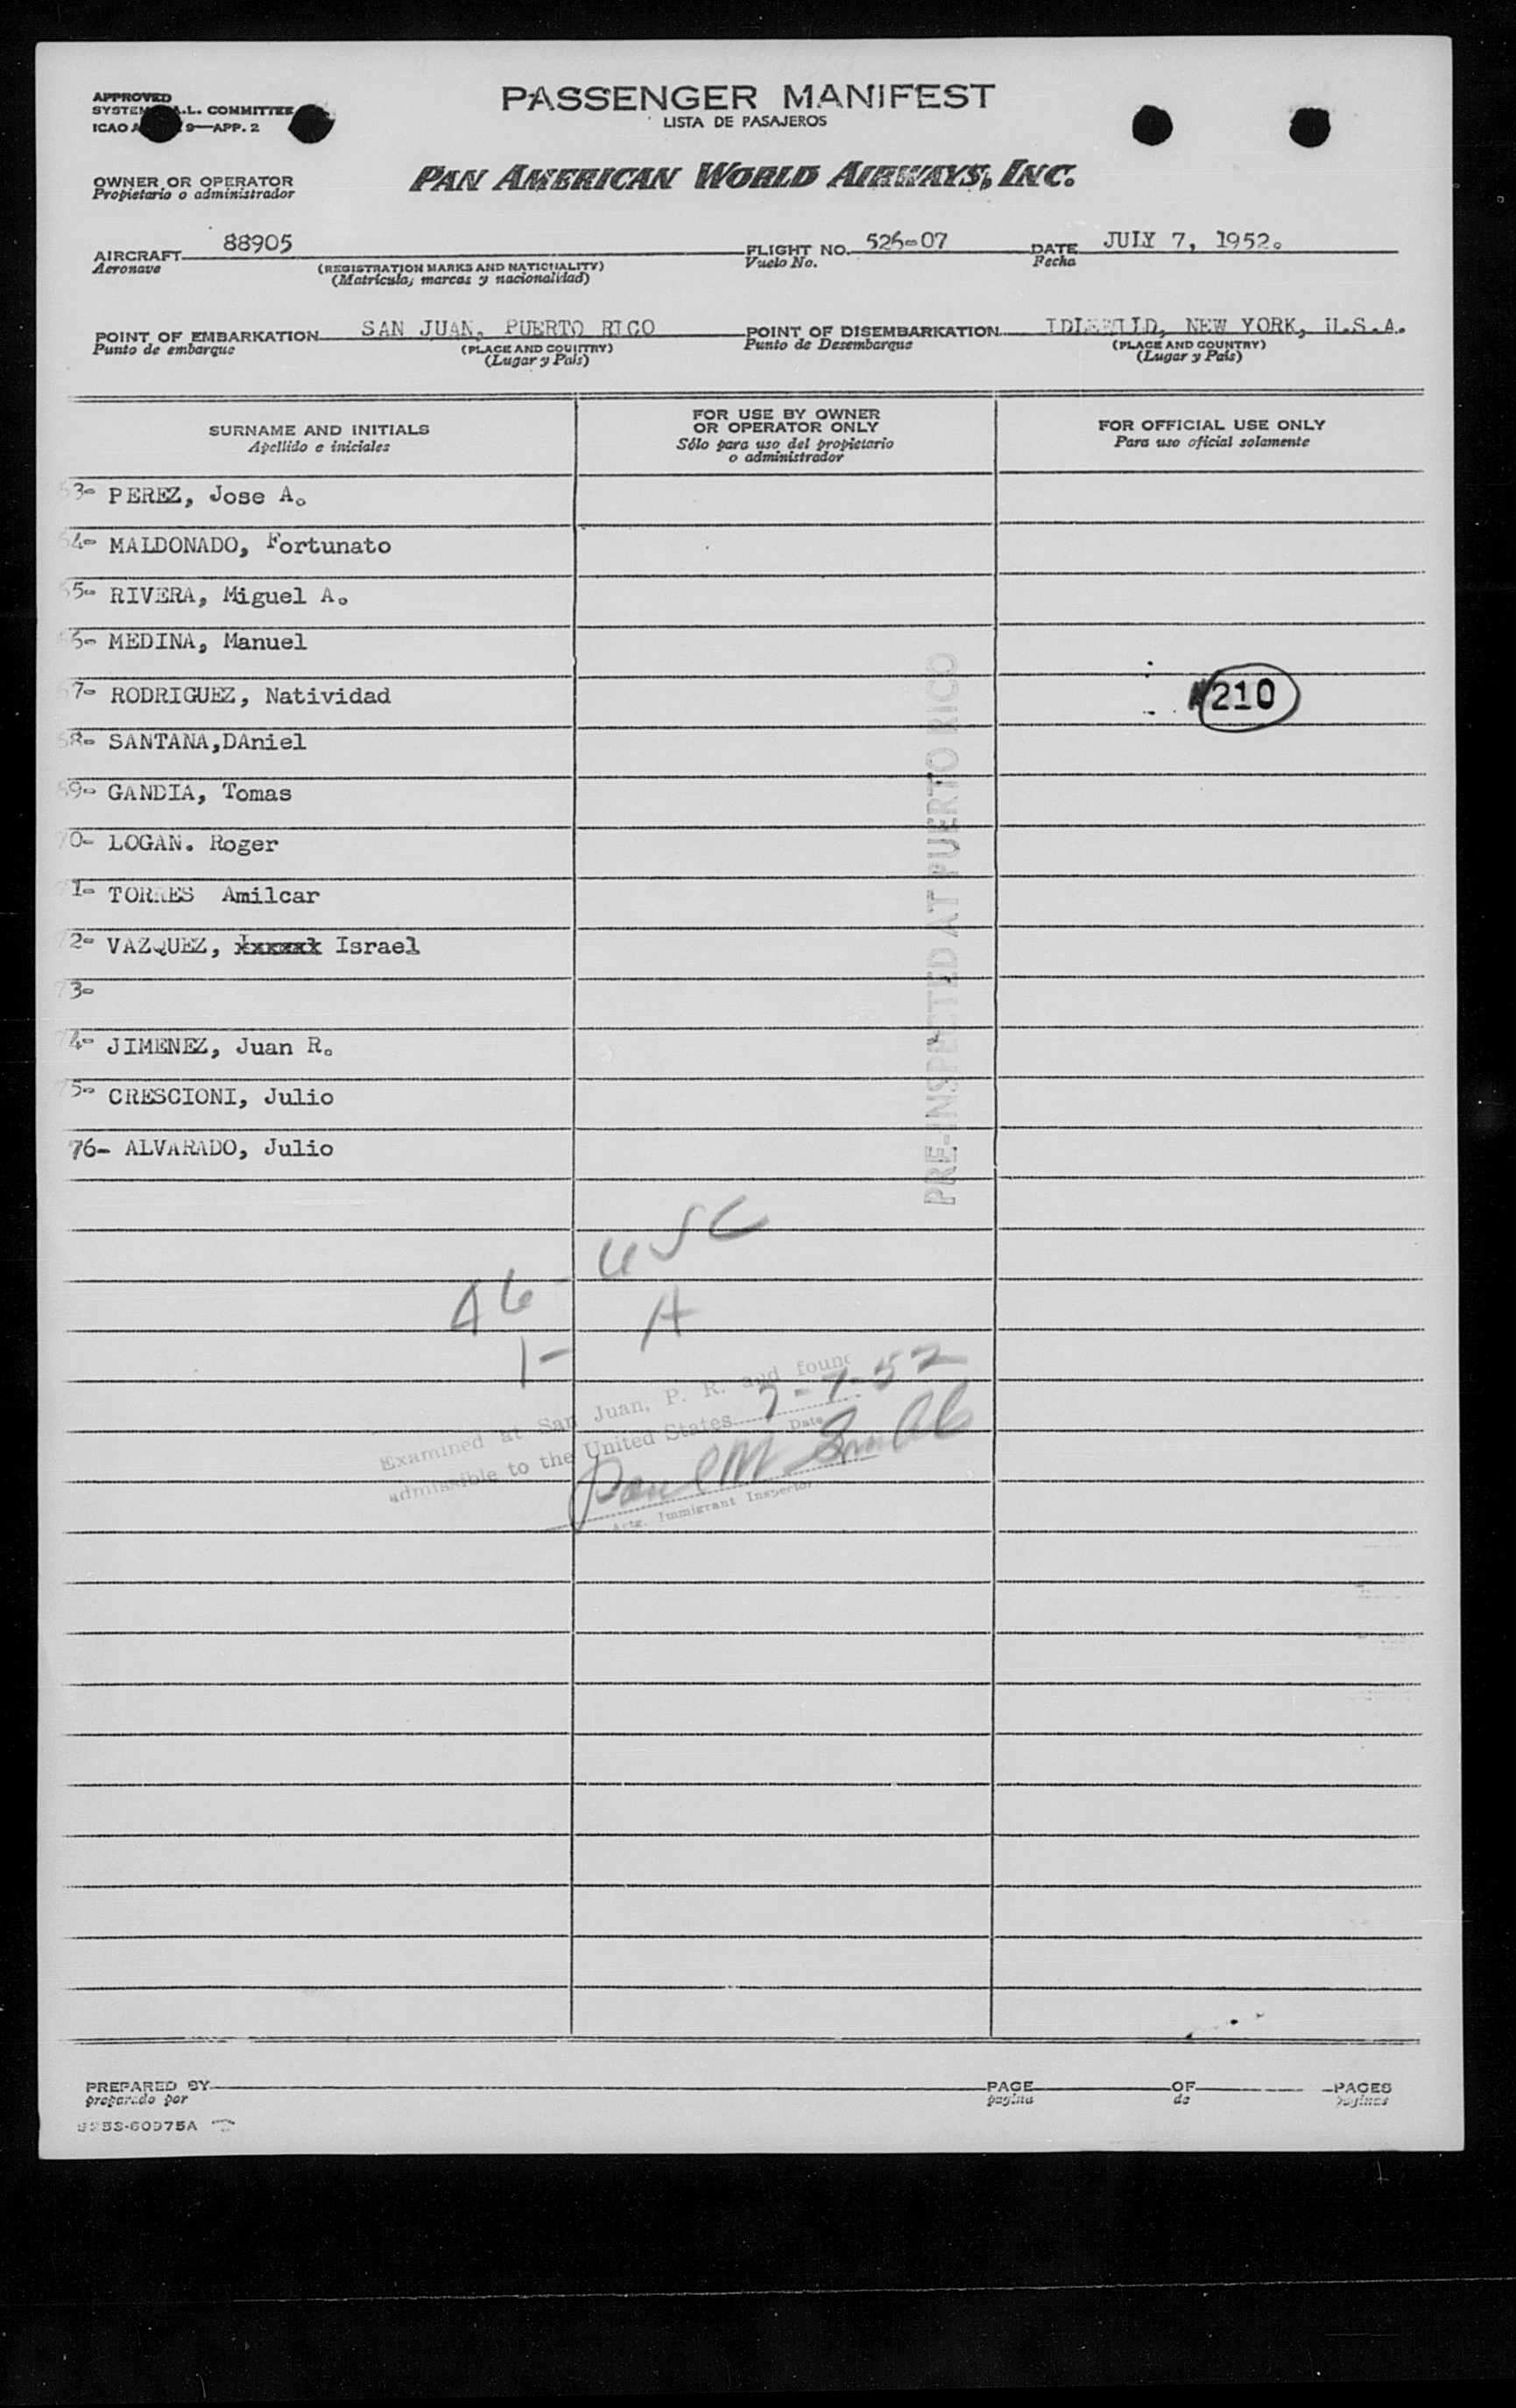 APPROVED
PASSENGER MANIFEST
LISTA DE PASAJEROS
COMMITTEE
9—APP. 2
OWNER OR OPERATOR
Propietario o administrador
PAN AMERICAN WORLD AIRWAYS, INC.
AIRCRAFT 88905
Aeronave
(REGISTRATION MARKS AND NATIONALITY)
(Matrícula, marcas y nacionalidad)
FLIGHT NO. 526-07
Vuelo No.
DATE JULY 7, 1952.
Fecha
POINT OF EMBARKATION SAN JUAN, PUERTO RICO
Punto de embarque
(PLACE AND COUNTRY)
(Lugar y País)
POINT OF DISEMBARKATION NEW YORK, U.S.A.
Punto de Desembarque
(PLACE AND COUNTRY)
(Lugar y País)
SURNAME AND INITIALS
Apellido e iniciales
FOR USE BY OWNER
OR OPERATOR ONLY
Sólo para uso del propietario
o administrador
FOR OFFICIAL USE ONLY
Para uso oficial solamente
63- PEREZ, Jose A.
64- MALDONADO, Fortunato
65- RIVERA, Miguel A.
66- MEDINA, Manuel
67- RODRIGUEZ, Natividad
210
68- SANTANA,DAniel
69- GANDIA, Tomas
70- LOGAN. Roger
71- TORRES Amilcar
72- VAZQUEZ, Israel
73-
74- JIMENEZ, Juan R.
75- CRESCIONI, Julio
76- ALVARADO, Julio
PRE-INSPECTED AT PUERTO RICO
46 - USC
1 - A
Examined at San Juan, P. R. and found
admissible to the United States 7-7-52
Date
Paul M
Immigrant Inspector
PREPARED BY
preparado por
PAGE
pagina
OF
de
PAGES
paginas